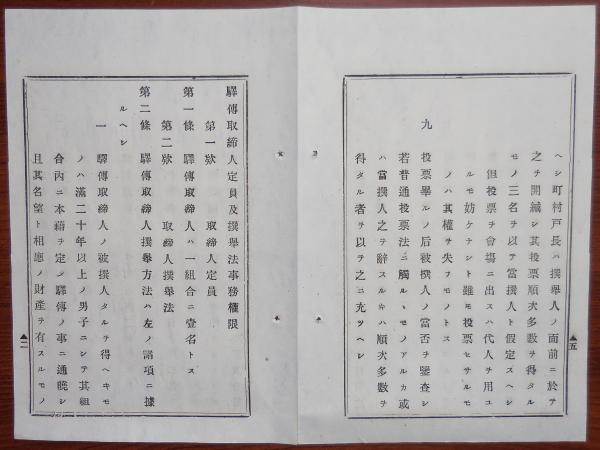 ヘシ町村戸長ハ撰擧人ノ面前ニ於テ
之ヲ開緘シ其投票順次多數ヲ得タル
モノ三名ヲ以テ當撰人ト假定スヘシ
但投票ヲ會塲ニ出スハ代人ヲ用ユ
ルモ妨ケナシト雖モ投票セサルモ
ノハ其權ヲ失フモノトス
九 投票畢ルノ后被撰人ノ當否ヲ鑒査シ
若普通投票法ニ觸ルヽモノアルカ或
ハ當撰人之ヲ辭スルキハ順次多數ヲ
得タル者ヲ以テ之ニ充ツヘシ
▲五
驛傳取締人定員及撰擧法事務權限
第一欵 取締人定員
第一條 驛傳取締人ハ一組合ニ壹名トス
第二欵 取締人撰擧法
第二條 驛傳取締人撰擧方法ハ左ノ諸項ニ據
ルヘシ
一 驛傳取締人ノ被撰人タルヲ得ヘキモ
ノハ滿二十年以上ノ男子ニシテ其組
合内ニ本籍ヲ定メ驛傳ノ事ニ通曉シ
且其名望ト相應ノ財產ヲ有スルモノ
▲二